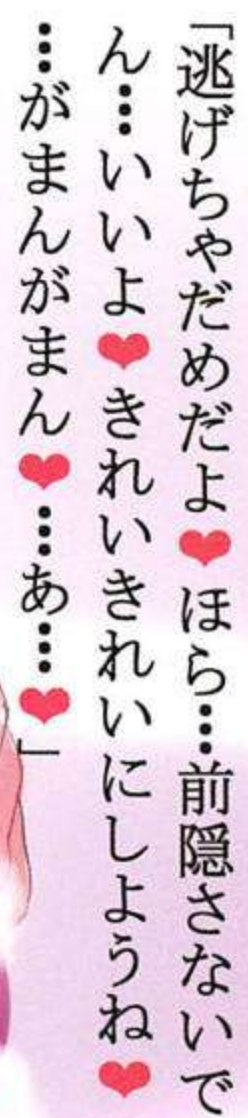 「逃げちゃだめだよ❤ほら…前隠さないで
ん…いいよ❤きれいきれいにしようね❤
…がまんがまん❤…あ…❤」